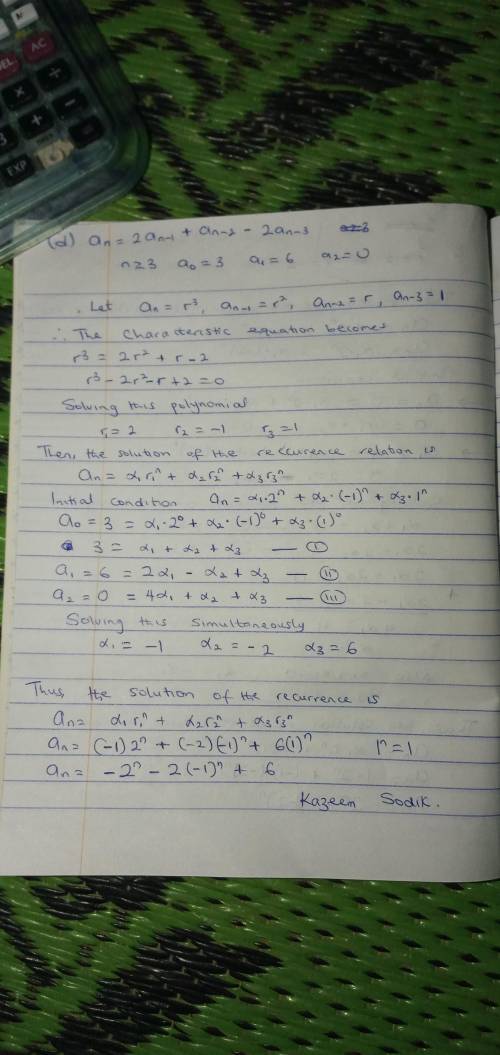 DEL
AC
×
÷
3
+
−
EXP
=
(d) aₙ = 2aₙ₋₁ + aₙ₋₂ - 2aₙ₋₃
n≥3 a₀ = 3 a₁ = 6 a₂ = 0
Let aₙ = r³, aₙ₋₁ = r², aₙ₋₂ = r, aₙ₋₃ = 1
∴ The characteristic equation becomes
r³ = 2r² + r - 2
r³ - 2r² - r + 2 = 0
Solving this polynomial
r₁ = 2 r₂ = -1 r₃ = 1
Then, the solution of the reccurence relation is
aₙ = α₁r₁ⁿ + α₂r₂ⁿ + α₃r₃ⁿ
Initial condition aₙ = α₁·2ⁿ + α₂·(-1)ⁿ + α₃·1ⁿ
a₀ = 3 = α₁·2⁰ + α₂·(-1)⁰ + α₃·(1)⁰
3 = α₁ + α₂ + α₃ — (I)
a₁ = 6 = 2α₁ - α₂ + α₃ — (II)
a₂ = 0 = 4α₁ + α₂ + α₃ — (III)
Solving this simultaneously
α₁ = -1 α₂ = -2 α₃ = 6
Thus the solution of the recurrence is
aₙ = α₁r₁ⁿ + α₂r₂ⁿ + α₃r₃ⁿ
aₙ = (-1)2ⁿ + (-2)(-1)ⁿ + 6(1)ⁿ 1ⁿ = 1
aₙ = -2ⁿ - 2(-1)ⁿ + 6
Kazeem Sodik.